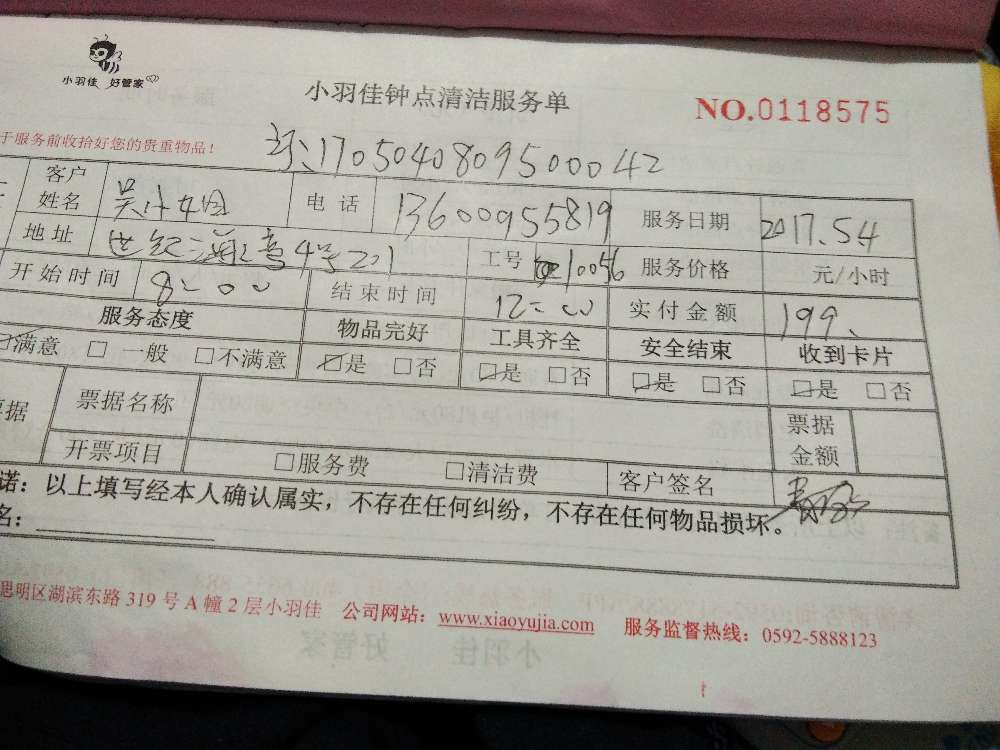 小羽佳 好管家
小羽佳钟点清洁服务单
NO.0118575
于服务前收拾好您的贵重物品！
170504809500042
客户姓名 吴小姐 电话 13600955819 服务日期 2017.5.4
地址 世纪海湾4号201 工号 10056 服务价格 元/小时
开始时间 8:00 结束时间 12:00 实付金额 199.
服务态度 物品完好 工具齐全 安全结束 收到卡片
☑满意 □一般 □不满意 ☑是 □否 ☑是 □否 ☑是 □否 ☑是 □否
据 票据名称 票据金额
开票项目 □服务费 □清洁费 客户签名
诺：以上填写经本人确认属实，不存在任何纠纷，不存在任何物品损坏。
名：
思明区湖滨东路 319 号 A 幢 2 层小羽佳 公司网站：www.xiaoyujia.com 服务监督热线：0592-5888123